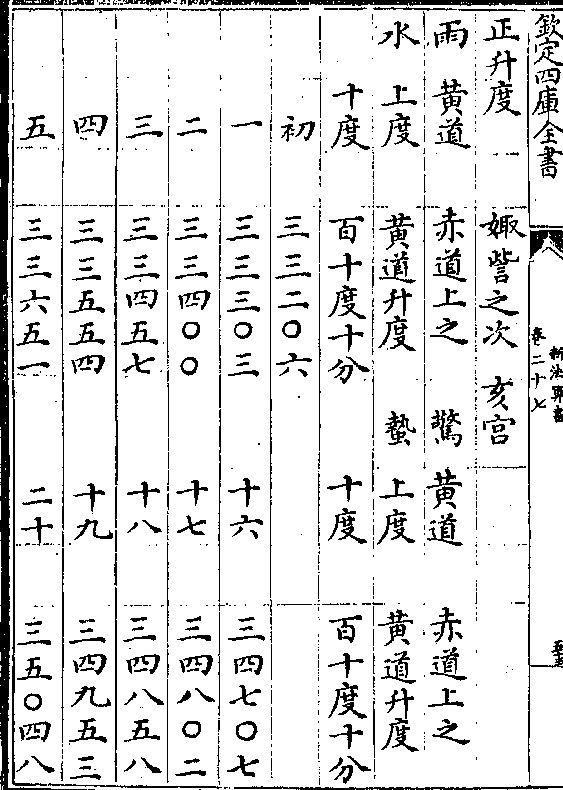 欽定四庫全書
新法算書
卷二十七
正升度 娵訾之次 亥宮
雨 黃道 赤道上之 驚 黃道 赤道上之
水 上度 黃道升度 蟄 上度 黃道升度
十度 百十度十分 十度 百十度十分
初 三三二〇六
一 三三三〇三 十六 三四七〇七
二 三三四〇〇 十七 三四八〇二
三 三三四五七 十八 三四八五八
四 三三五五四 十九 三四九五三
五 三三六五一 二十 三五〇四八